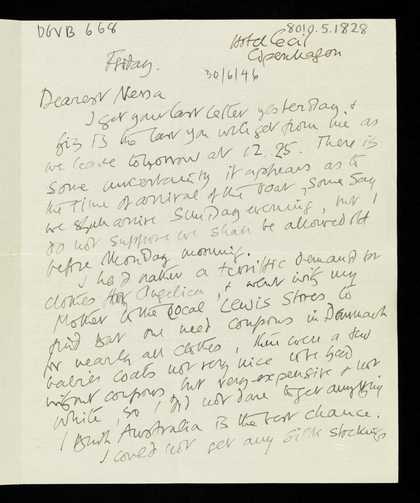 DGVB 668
8010.5.1828
Hotel Cecil
Copenhagen
Friday.
30/6/46
Dearest Nessa
I got your last letter yesterday, &
this is the last you will get from me as
we leave tomorrow at 12.25. There is
some uncertainty it appears as to
the time of arrival of the boat, some say
we shall arrive Sunday evening, but I
do not suppose we shall be allowed off
before Monday morning.
I had rather a terrific demand for
clothes from Angelica, & went with my
Mother to the local Lewis Stores to
find that one need coupons in Denmark
for nearly all clothes, there were a few
babies coats not very nice
without coupons, but very expensive & not
white, so I did not dare to get anything
I think Australia is the best chance.
I could not get any silk stockings